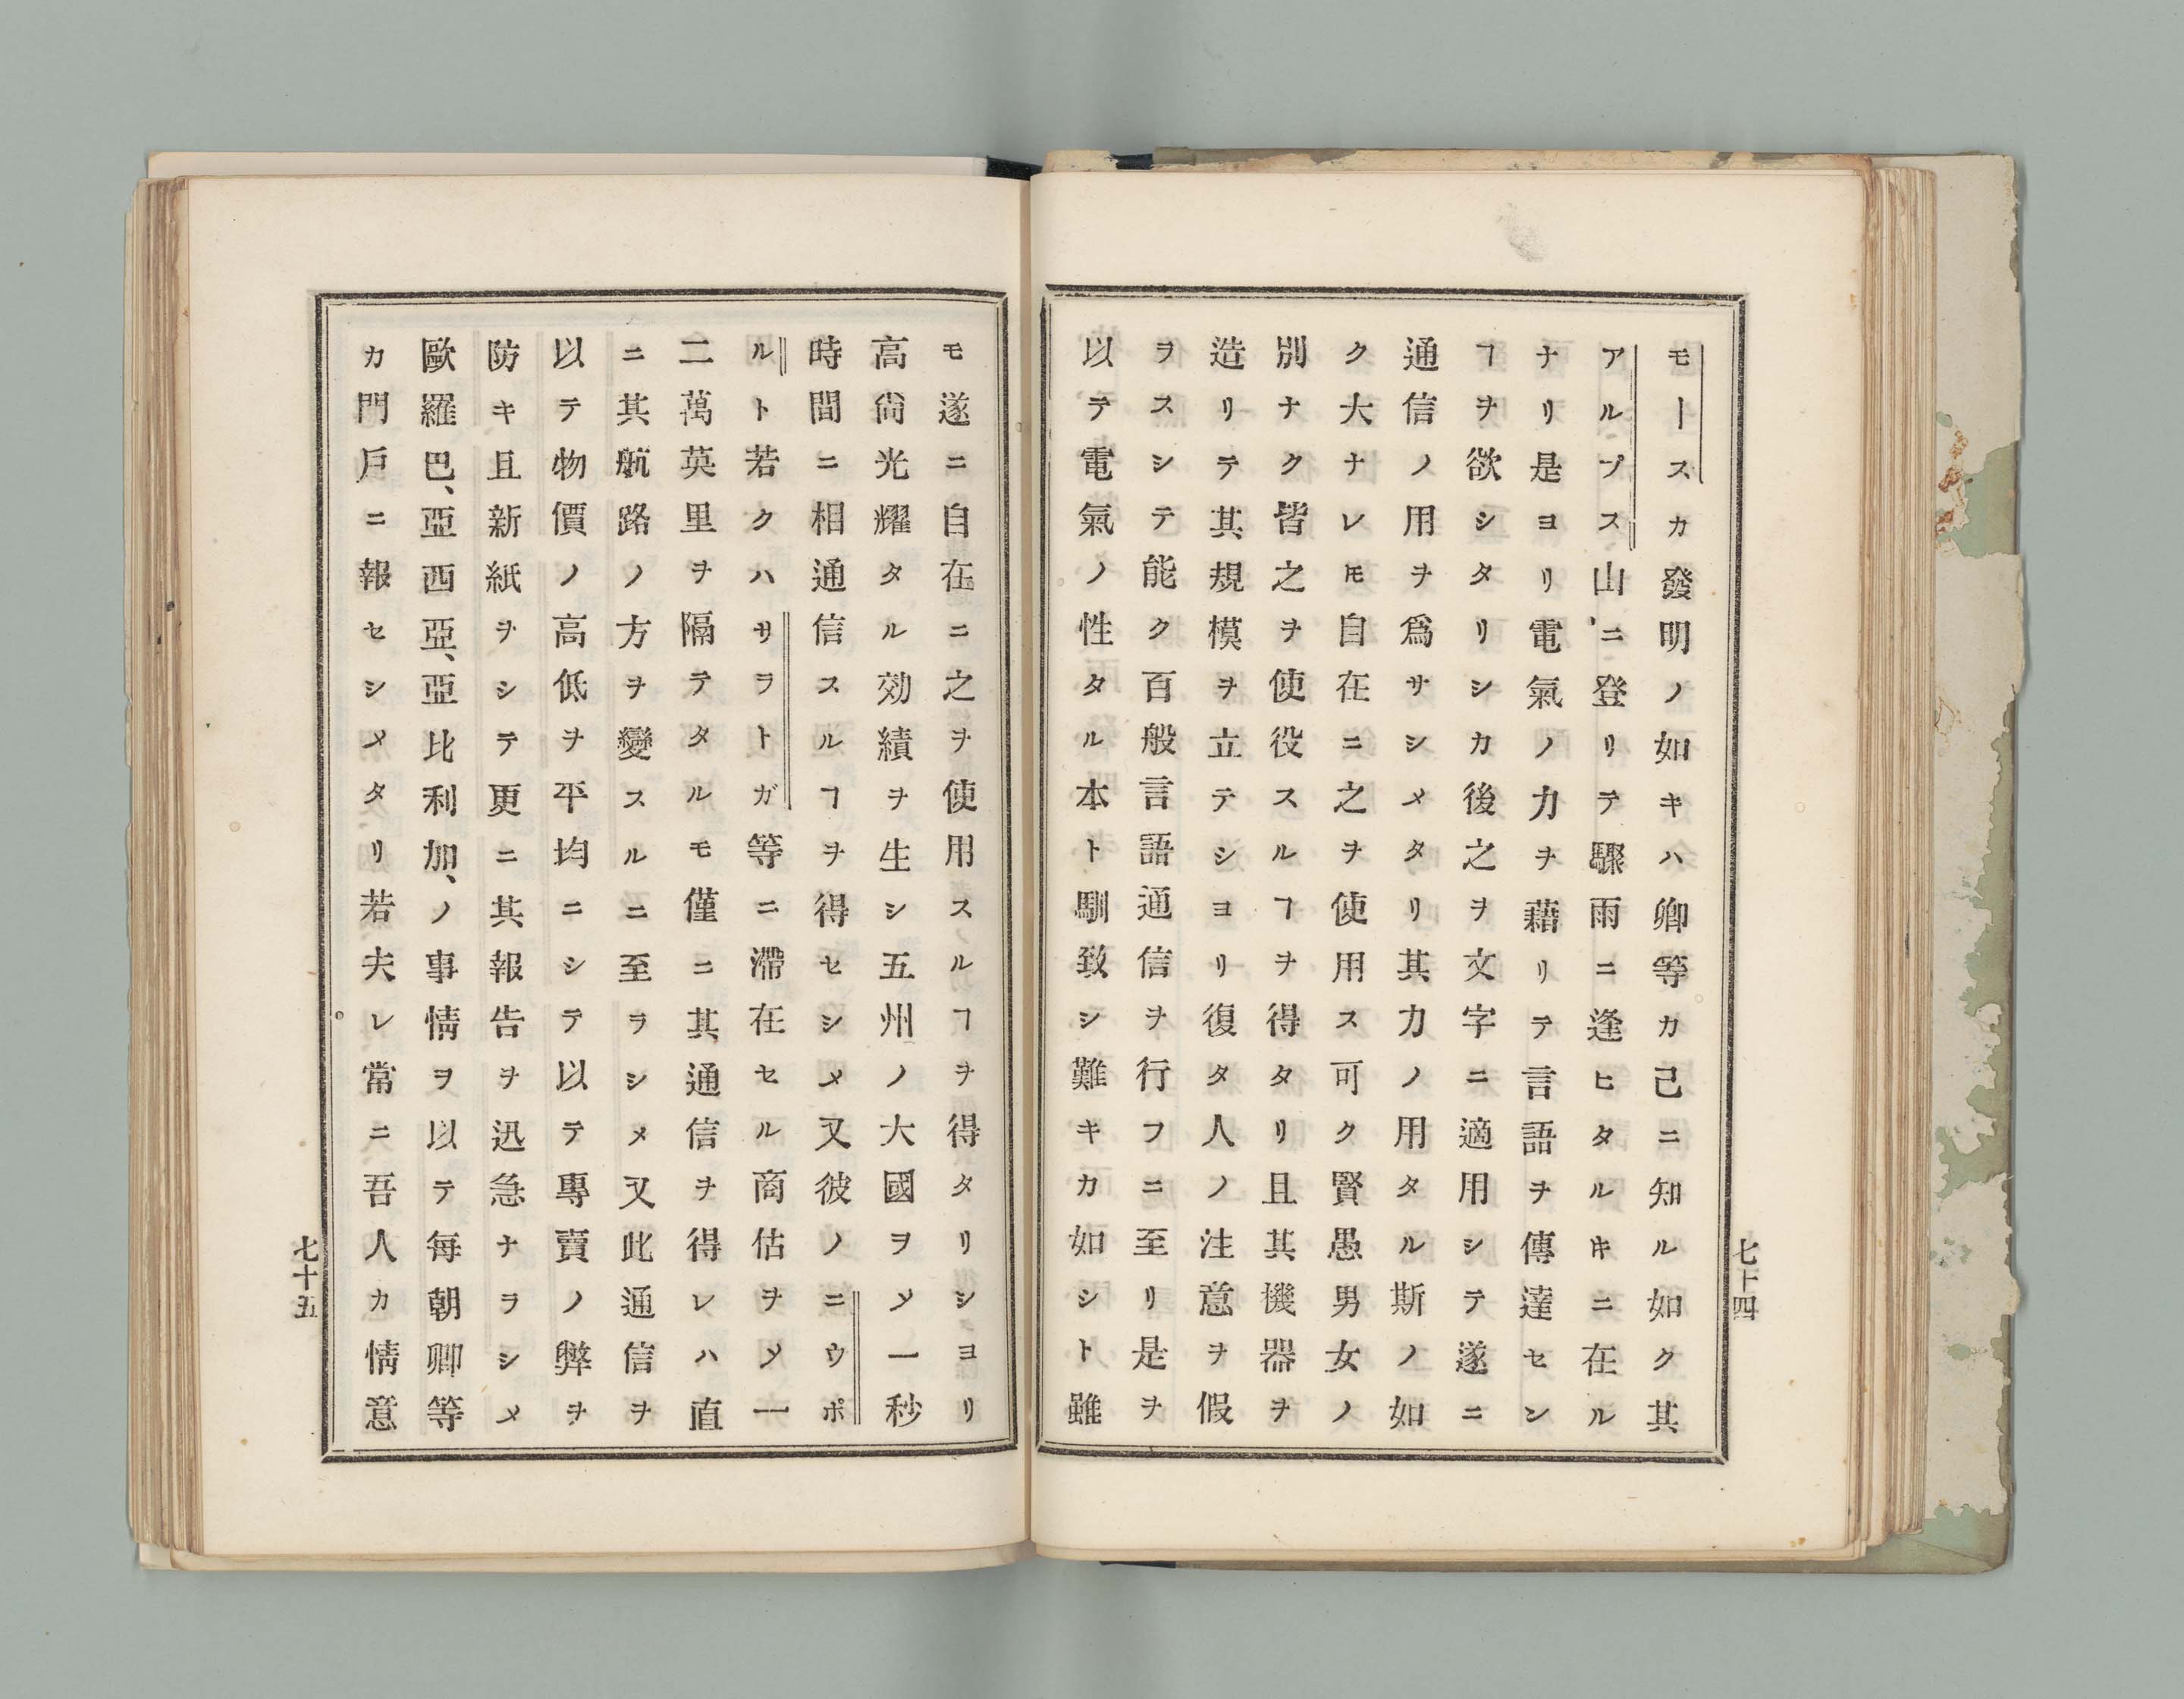 モースカ發明ノ如キハ卿等カ己ニ知ル如ク其
アルプス山ニ登リテ驟雨ニ逢ヒタルキニ在ル
ナリ是ヨリ電氣ノ力ヲ藉リテ言語ヲ傳達セン
ヿヲ欲シタリシカ後之ヲ文字ニ適用シテ遂ニ
通信ノ用ヲ爲サシメタリ其力ノ用タル斯ノ如
ク大ナレ𪜈自在ニ之ヲ使用ス可ク賢愚男女ノ
別ナク皆之ヲ使役スルヿヲ得タリ且其機器ヲ
造リテ其規模ヲ立テシヨリ復タ人ノ注意ヲ假
ヲスシテ能ク百般言語通信ヲ行フニ至リ是ヲ
以テ電氣ノ性タル本ト馴致シ難キカ如シト雖
七十四
モ遂ニ自在ニ之ヲ使用スルヿヲ得タリシヨリ
高尙光耀タル効績ヲ生シ五州ノ大國ヲ〆一秒
時間ニ相通信スルヿヲ得セシメ又彼ノニウポ
ルト若クハサヲトガ等ニ滯在セル商估ヲ〆一
二萬英里ヲ隔テタルモ僅ニ其通信ヲ得レハ直
ニ其航路ノ方ヲ變スルニ至ラシメ又此通信ヲ
以テ物價ノ高低ヲ平均ニシテ以テ專賣ノ弊ヲ
防キ且新紙ヲシテ更ニ其報告ヲ迅急ナラシメ
歐羅巴、亞西亞、亞比利加、ノ事情ヲ以テ每朝卿等
カ門戶ニ報セシメタリ若夫レ常ニ吾人カ情意
七十五